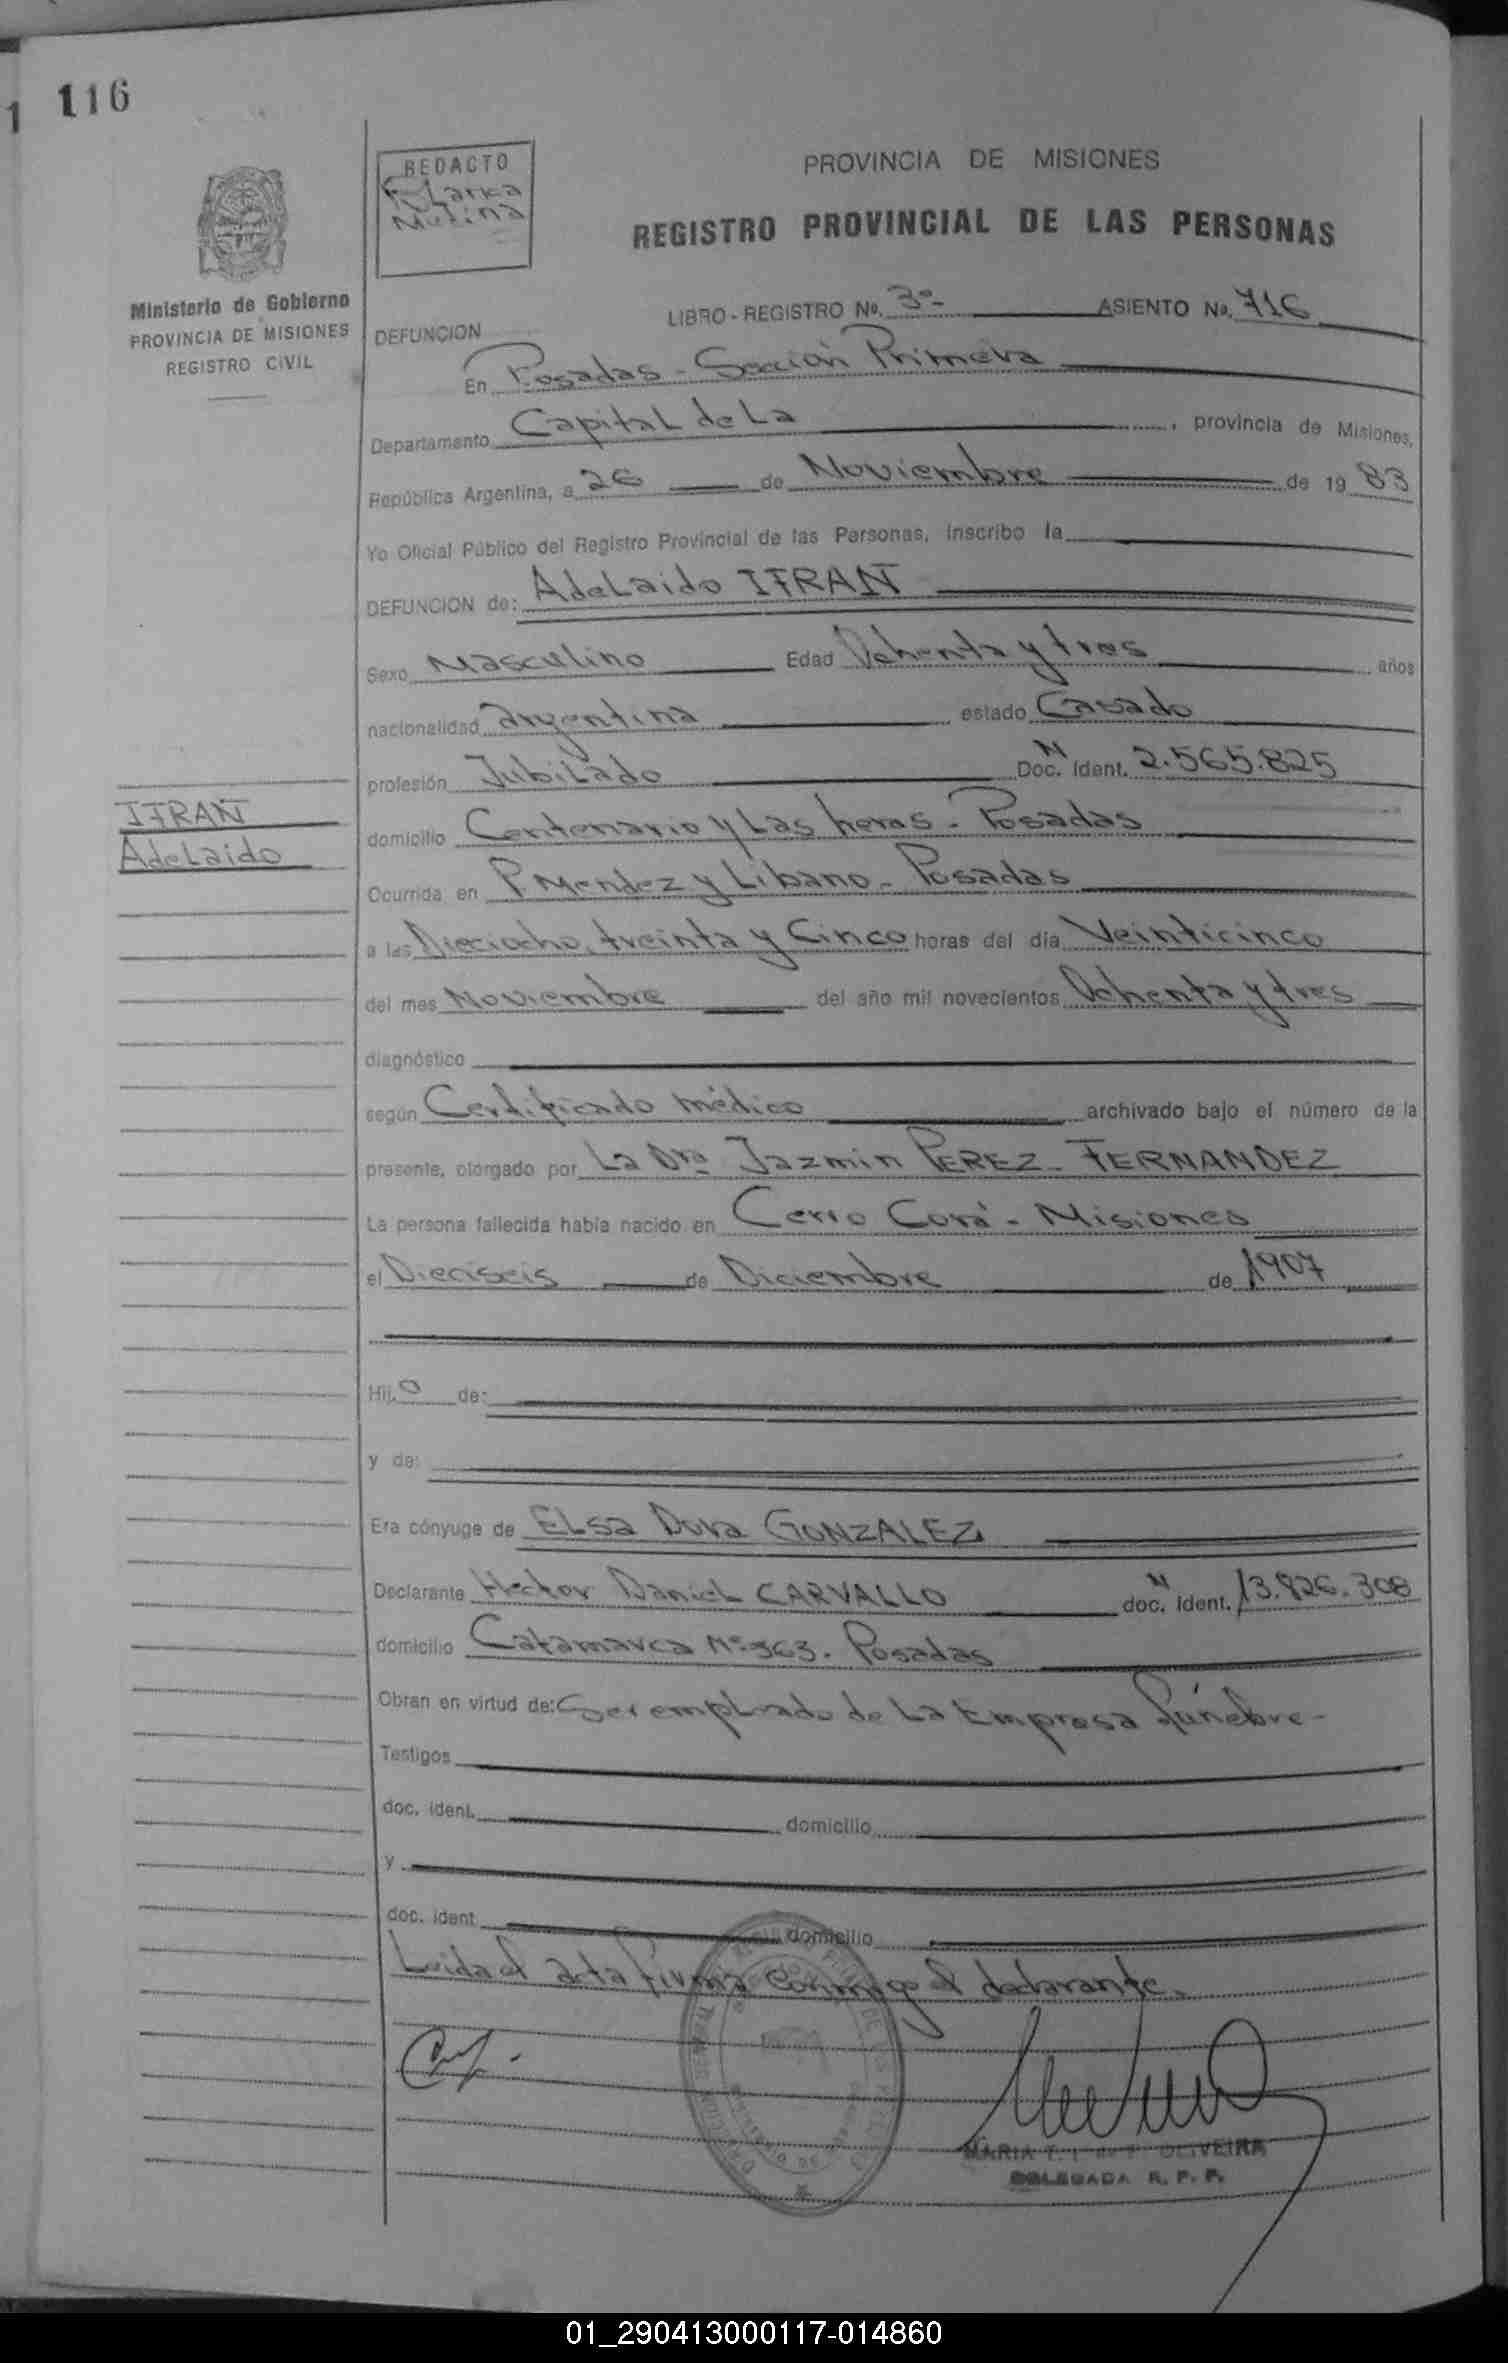 116
1
REDACTO
Molina
PROVINCIA DE MISIONES
REGISTRO PROVINCIAL DE LAS PERSONAS
Ministerio de Gobierno
PROVINCIA DE MISIONES
REGISTRO CIVIL
LIBRO - REGISTRO No. 3º- ASIENTO No. 716
DEFUNCION
En Posadas - Sección Primera
Departamento Capital de La , provincia de Misiones,
República Argentina, a 26 de Noviembre de 19 83
Yo Oficial Público del Registro Provincial de las Personas, inscribo la
DEFUNCION de: Adelaido IFRAN
Sexo Masculino Edad Ochenta y tres años
nacionalidad argentina estado Casado
profesión Jubilado Doc. Ident. N 2.565.825
IFRAN
Adelaido
domicilio Centenario y Las heras - Posadas
Ocurrida en P. Mendez y Libano - Posadas
a las Dieciocho, treinta y Cinco horas del día Veinticinco
del mes Noviembre del año mil novecientos Ochenta y tres
diagnóstico
según Certificado médico archivado bajo el número de la
presente, otorgado por La Dra Jazmin PEREZ - FERNANDEZ
La persona fallecida había nacido en Cerro Corá - Misiones
el Dieciseis de Diciembre de 1907
Hij. o de:
y de:
Era cónyuge de ELsa Dora GONZALEZ
Declarante Hector Daniel CARVALLO doc. ident. N 13.826.308
domicilio Catamarca Nº 363. Posadas
Obran en virtud de: Ser empleado de La Empresa fúnebre -
Testigos
doc. ident. domicilio
y
doc. ident domicilio
Leida el acta firma conmigo el declarante.
MARIA T. OLIVEIRA
DELEGADA R. P. P.
01_290413000117-014860